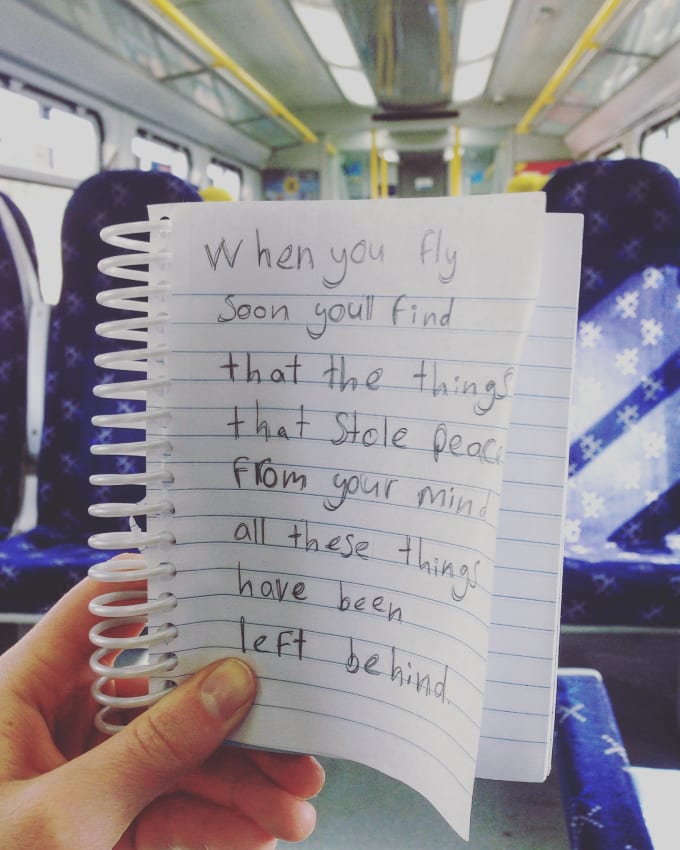 When you fly
Soon youll find
that the things
that Stole peace
From your mind
all these things
have been
left behind.